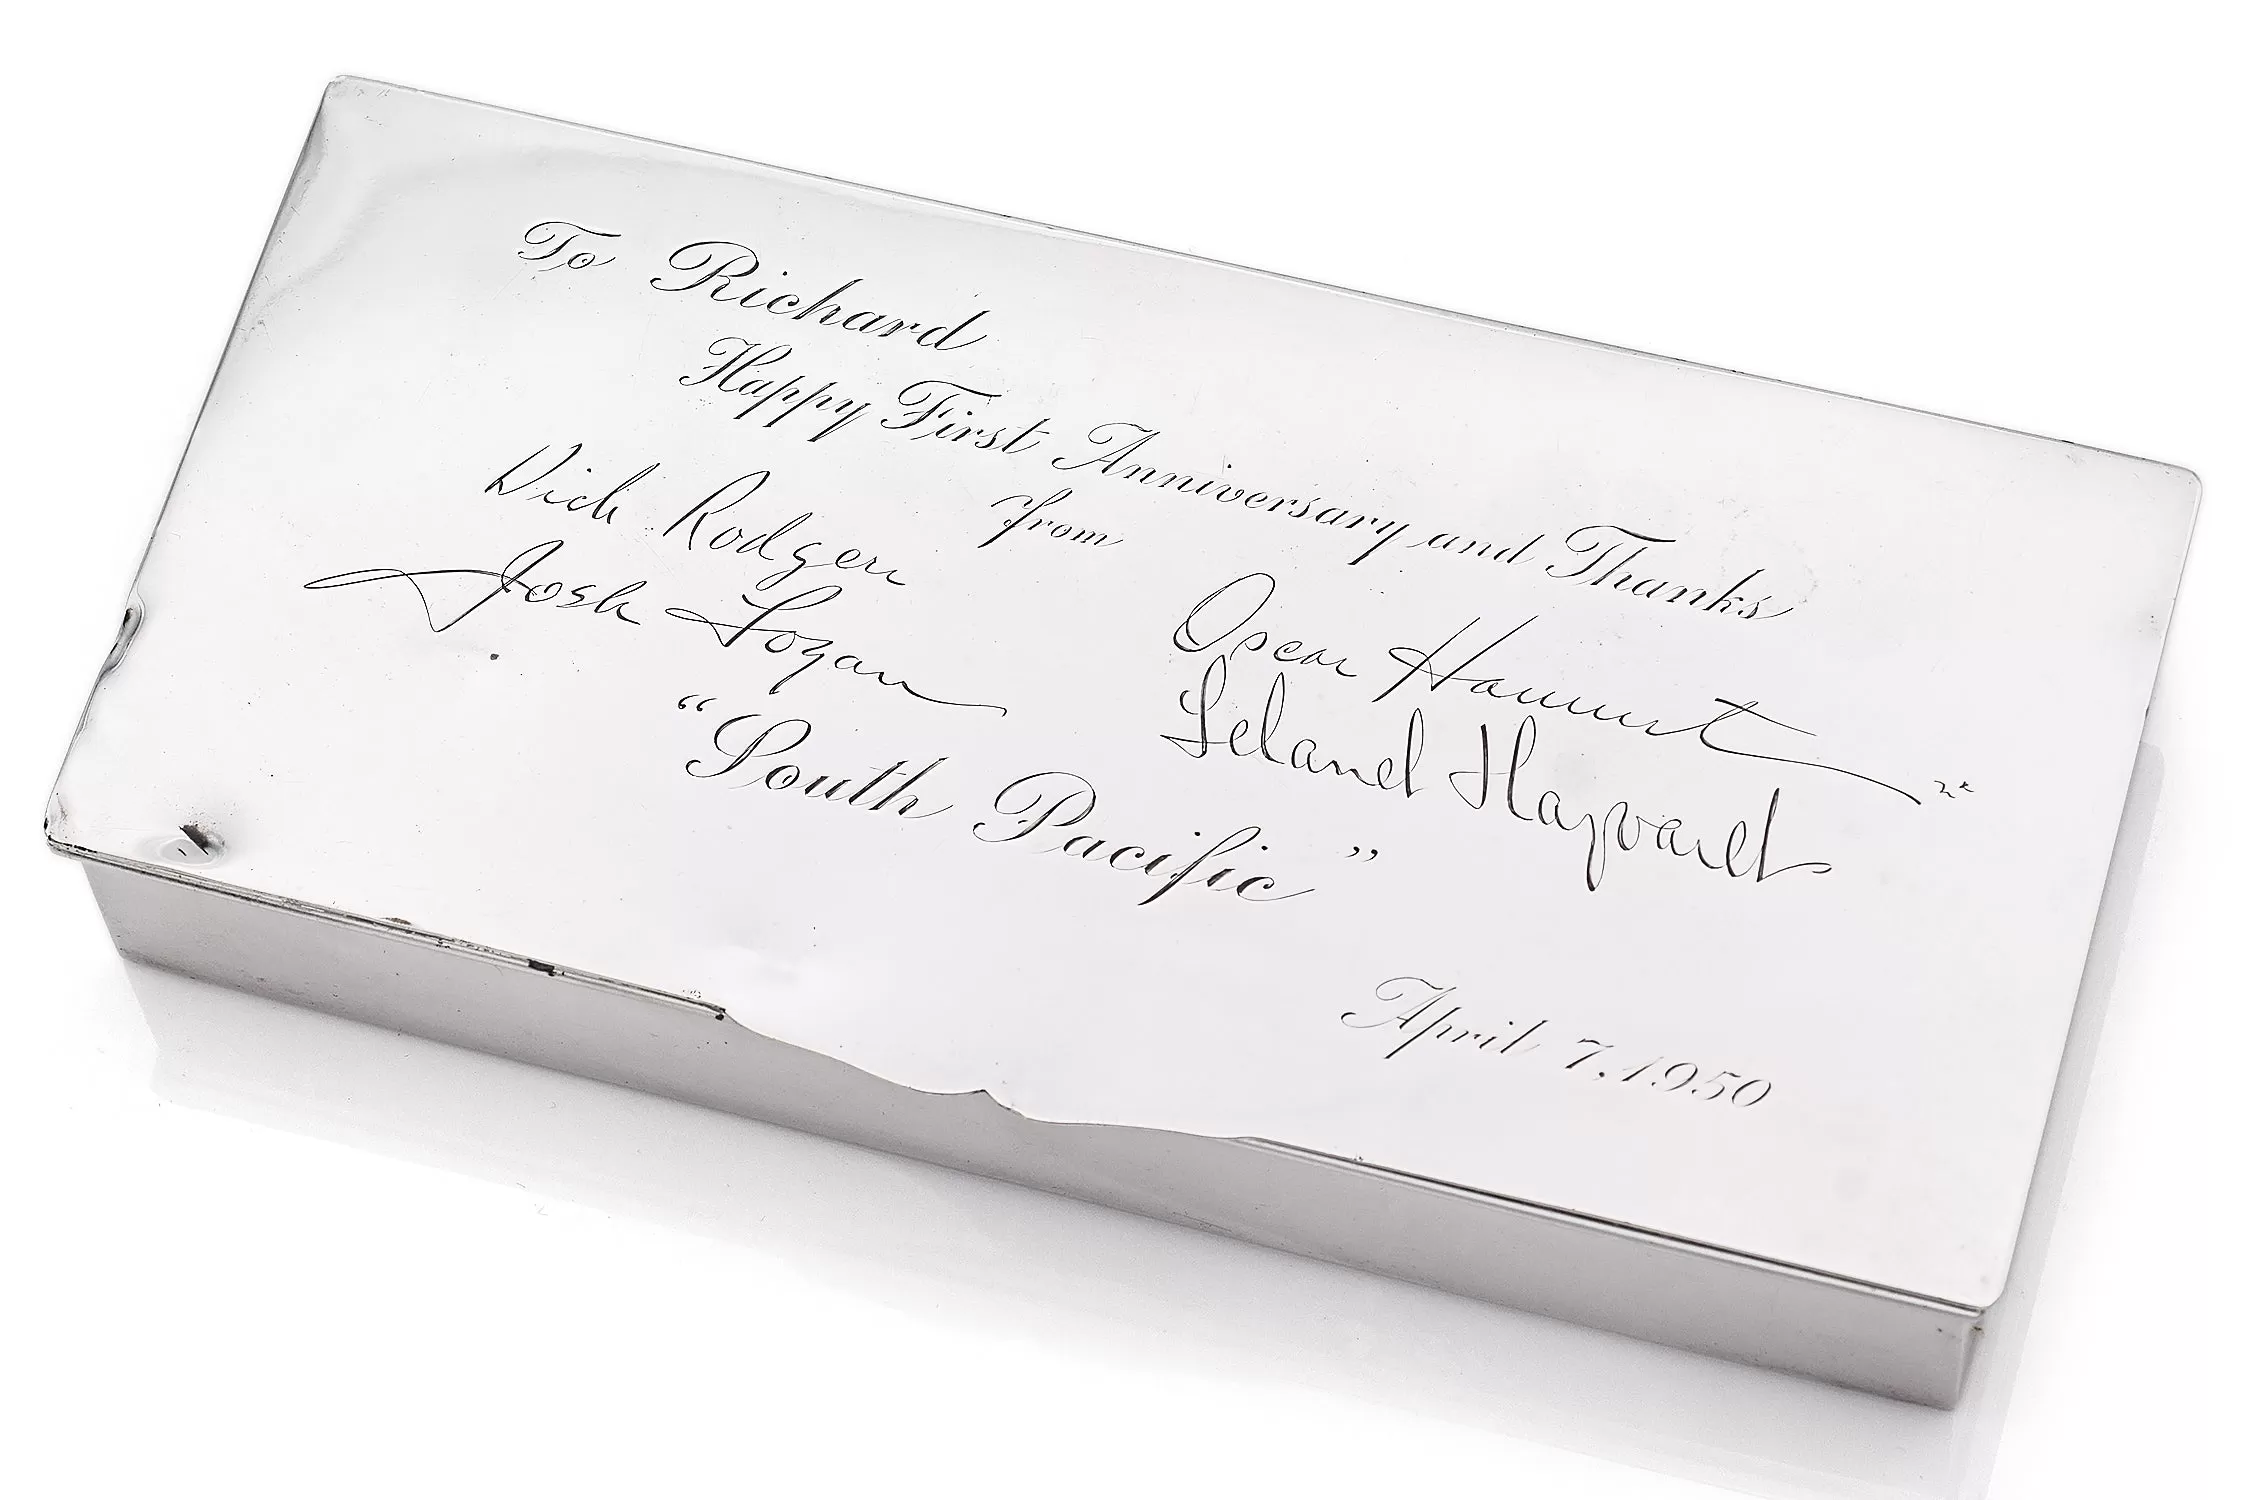 To Richard
Happy First Anniversary and Thanks
from
Dick Rodgers
Oscar Hammerst 2d
Josh Logan
Leland Hayward
“South Pacific”
April 7, 1950